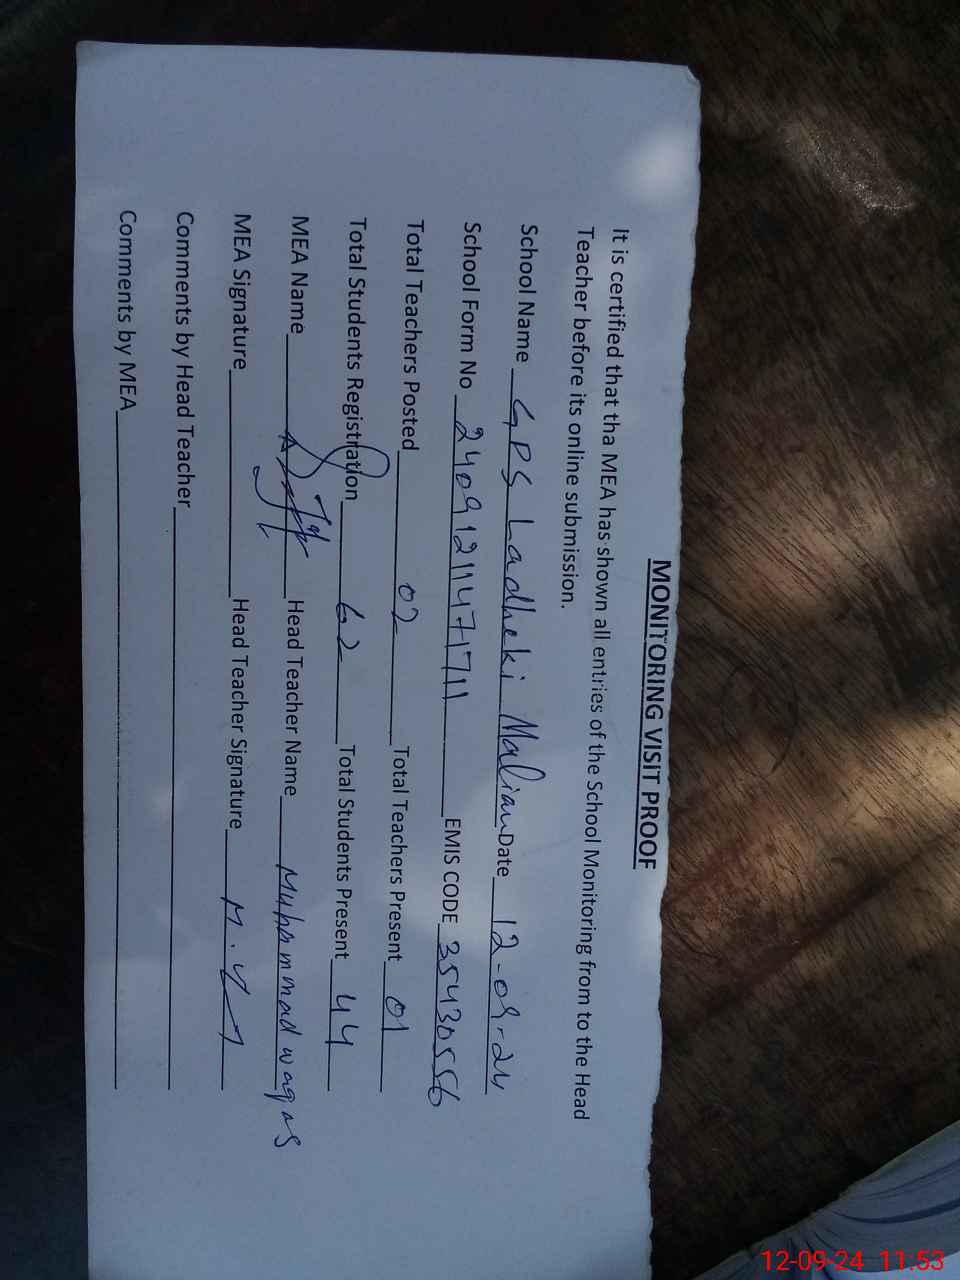 MONITORING VISIT PROOF
It is certified that tha MEA has shown all entries of the School Monitoring from to the Head
Teacher before its online submission.
School Name GPS Ladheki Malian Date 12-09-24
School Form No 24091211471711 EMIS CODE 35430556
Total Teachers Posted 02 Total Teachers Present 01
Total Students Registration 62 Total Students Present 44
MEA Name Head Teacher Name Muhammad waqas
MEA Signature Head Teacher Signature
Comments by Head Teacher
Comments by MEA
12-09-24 11:53